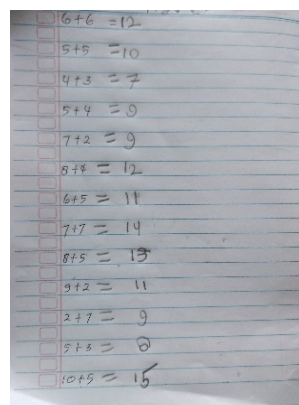 6+6 = 12
5+5 = 10
4+3 = 7
5+4 = 9
7+2 = 9
8+4 = 12
6+5 = 11
7+7 = 14
8+5 = 13
9+2 = 11
2+7 = 9
5+3 = 8
10+5 = 15